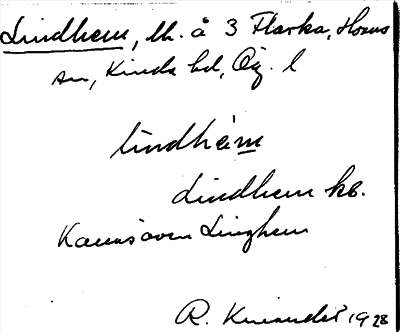 Lindhem, lh. å 3 Flarka, Horns
sn, Kinda hd, Ög. l
lindhèm
Lindhem kb.
även Linghem
R. 1928